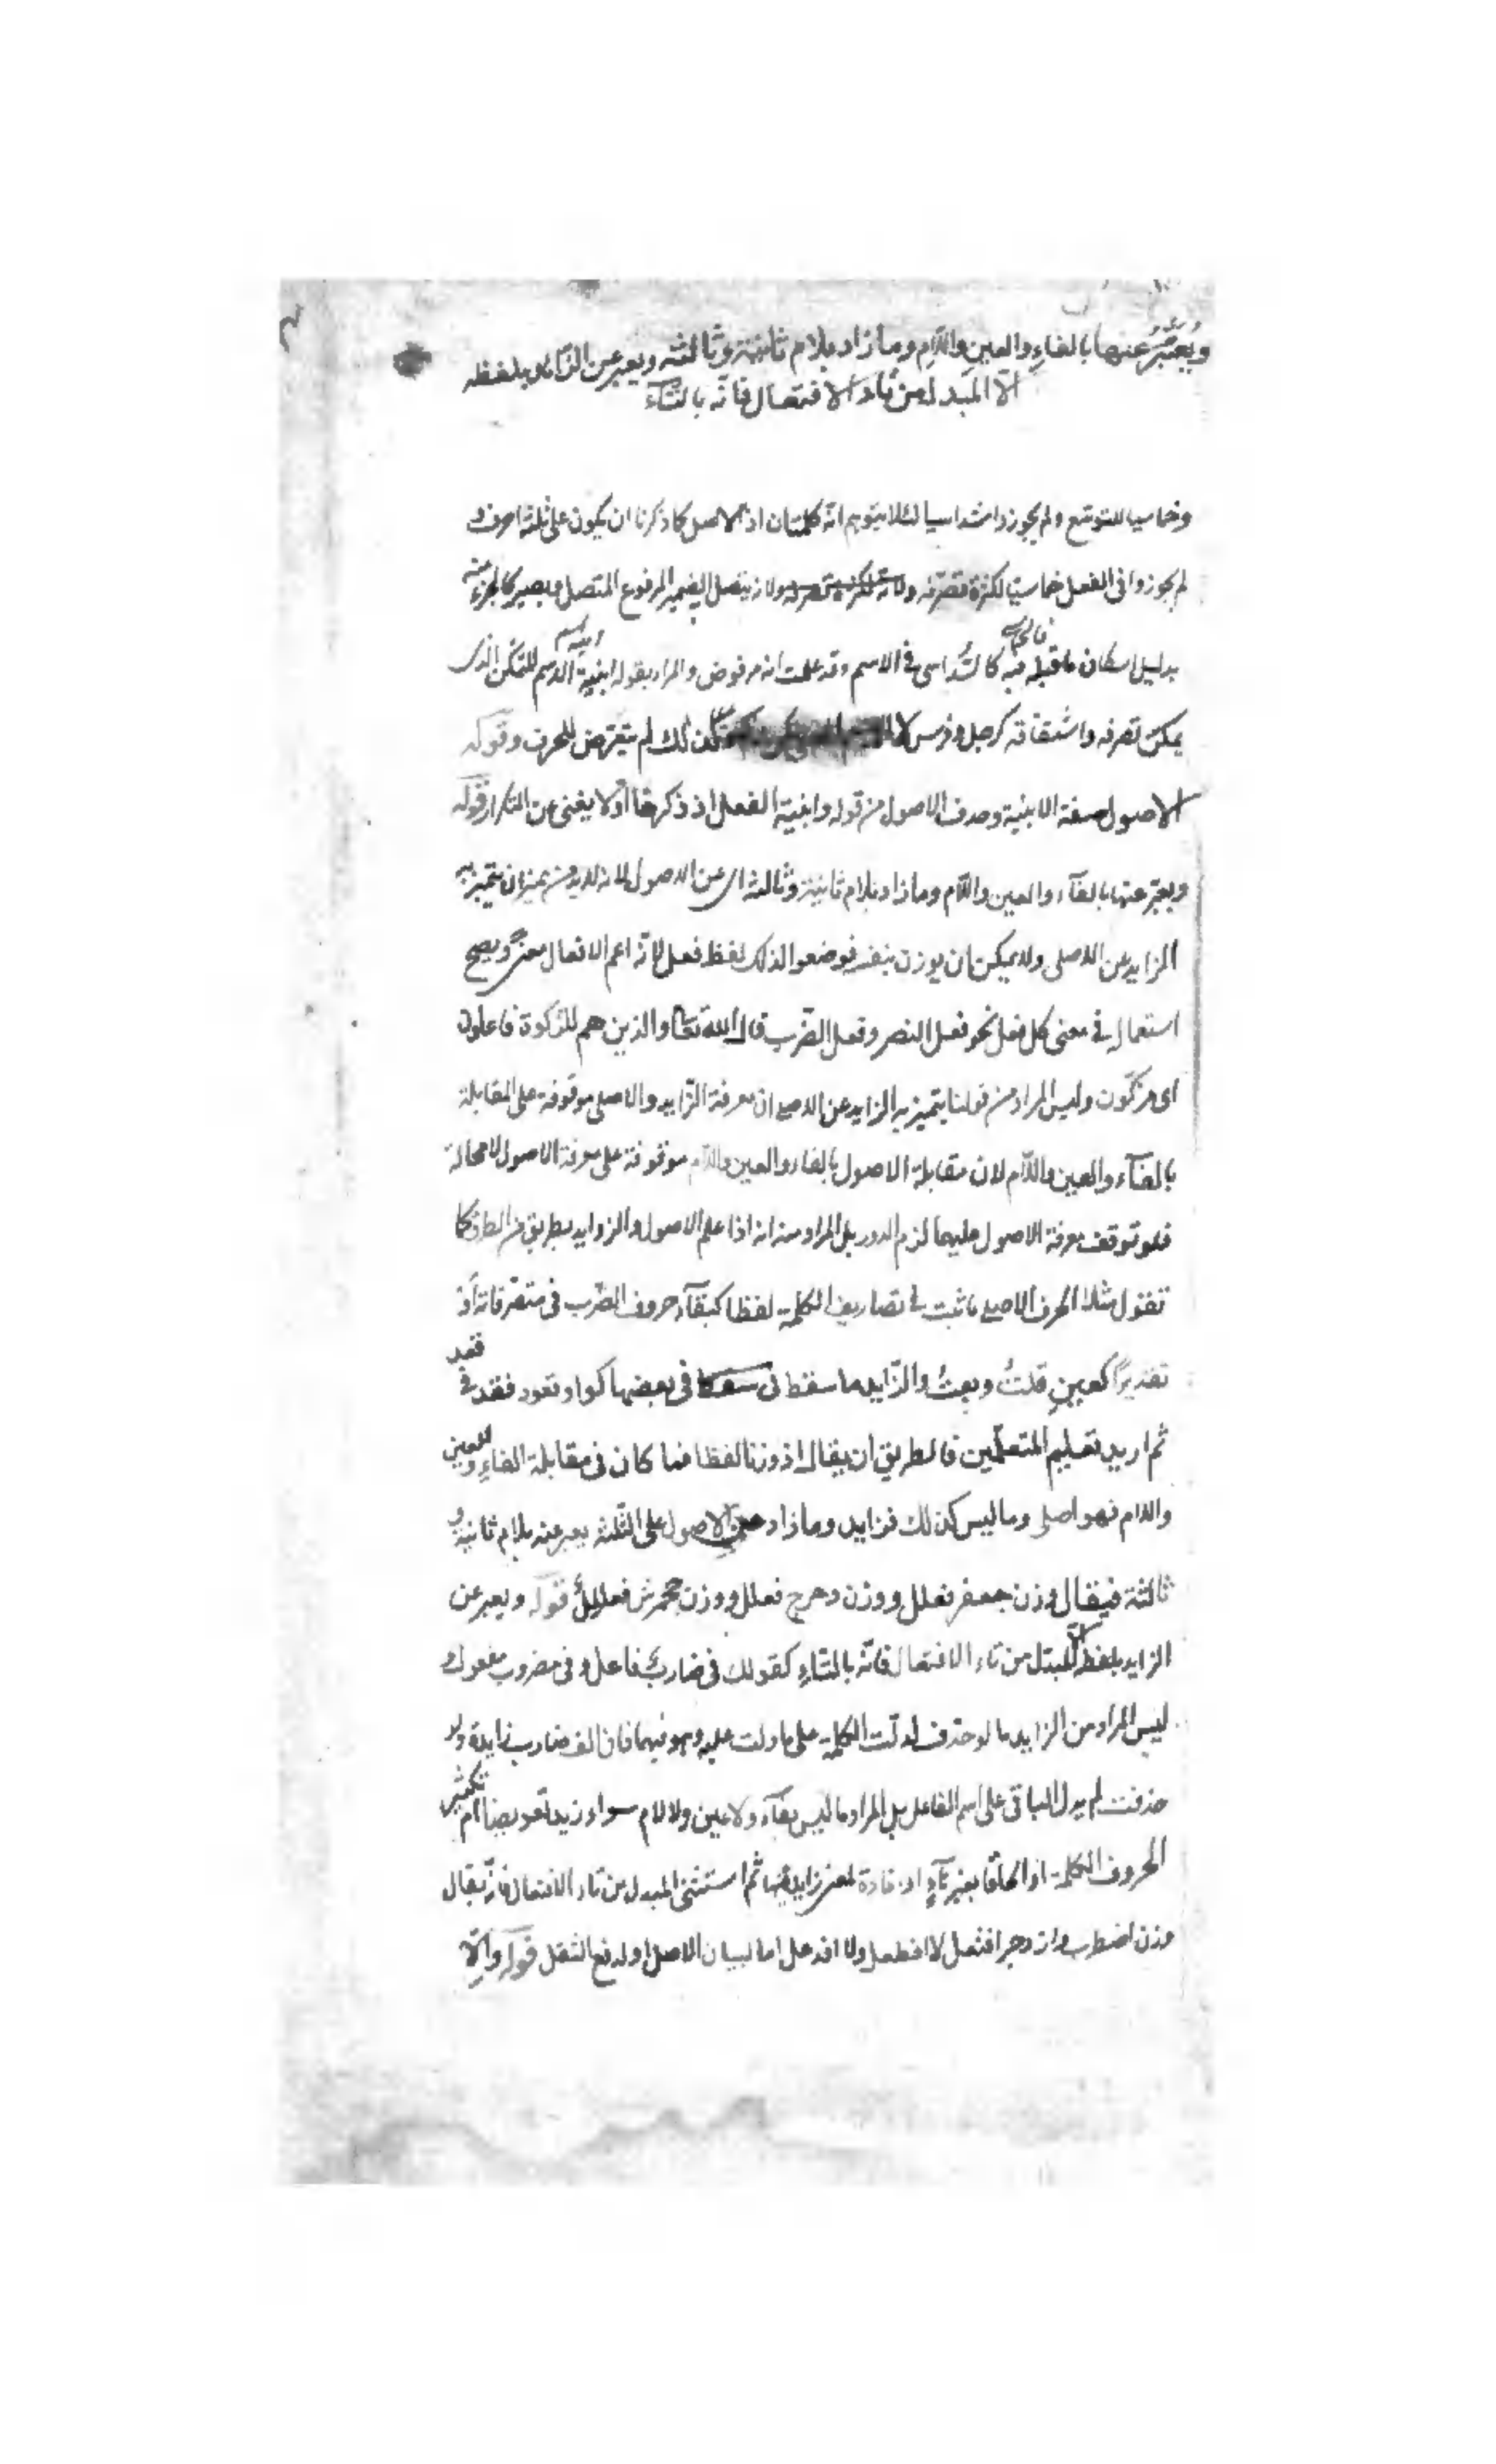 ويُعَبَّرُ عنها بالفاءِ والعينِ واللامِ وما زاد بلامٍ ثانيةٍ وثالثةٍ ويعبر عن الزائد بلفظه
الّا المبدلَ من تاء الافتعال فانّه بالتّاء
وخماسيا للتوسّع ولم يجوزوا سُداسيا لئلا يتوهم انّه كلمتان اذ الاصل كما ذكرنا ان يكون على ثلثة احرف و
لم يجوزوا فى الفعل خماسيّا لكثرة تصرّفه ولانه يتصل الضمير المرفوع المتصل ويصير كالجزء منه
بدليل اسكان ما قبله فالخماسى فيه كالسُّداسى فى الاسم وقد علمت انه مرفوض والمراد بقوله ابنية الاسم المتمكن الذى
يمكن تصرفه واشتقاقه كرجل وفرس كذلك لم يتعرض للحرف وقوله
الاصول صفة الابنية وحذف الاصول من قوله وابنية الفعل اذ ذكرها اولا يغنى عن التكرار قوله
ويعبّر عنها بالفآء والعين واللّام وما زاد بلام ثانية وثالثة اى عن الاصول لانه لابد من ميزان يتميّز به
الزايد عن الاصلى ولا يمكن ان يوزن بنفسه فوضعوا لذلك لفظ فعل لانّه اعم الافعال معنىً ويصح
استعماله فى معنى كل فعل نحو فعل النصر وفعل الضّرب قال الله تعالى والذين هم للزكوة فاعلون
اى مزكّون وليس المراد من قولنا يتميز به الزايد عن الاصلى ان معرفة الزّايد والاصلى موقوفة على المقابلة
بالفآء والعين واللّام لان مقابلة الاصول بالفاء والعين واللام موقوفة على معرفة الاصول لا محالة
فلو توقف معرفة الاصول عليها لزم الدور بل المراد منه انه اذا علم الاصول والزوايد بطريق من الطرق كما
تقول مثلا الحرف الاصلى ما ثبت فى تصاريف الكلمة لفظا كبقآء حروف الضّرب فى متصرّفاته او
تقديرًا كعين قلتُ وبعتُ والزّايد ما سقط فى بعضها كواو قعود فقد فى قعد
ثم اريد تعليم المتعلّمين فالطريق ان يقال اذ وزنّا لفظا فما كان فى مقابلة الفاءِ والعين
واللام فهو اصلى وما ليس كذلك فزايد وما زاد من الاصول على الثّلثة يعبر عنه بلام ثانية و
ثالثة فيقال وزن جعفر فعلل ووزن دحرج فعلل ووزن جحمرش فعلللٌ قوله ويعبر عن
الزايد بلفظه الّا المبدل من تاء الافتعال فانّه بالتّاءِ كقولك فى ضاربٌ فاعل وفى مضروب مفعول و
ليس المراد من الزايد ما لو حذف لدلّت الكلمة على ما دلت عليه وهو فيها فان الف ضارب زايدة ولو
حذفت لم يدل الباقى على اسم الفاعل بل المراد ما ليس بفآء ولا عين ولا لام سواء زيد تعويضا ام تكثير
الحروف الكلمة او الحاقا بغير تآءٍ او افادة لمعنى زايد فيها ثم استثنى المبدل من تاء الافتعال فانّه يقال
وزن اضطرب وازدجر افتعل لا افطعل ولا افدعل اما لبيان الاصل او لدفع الثقل قوله والّا